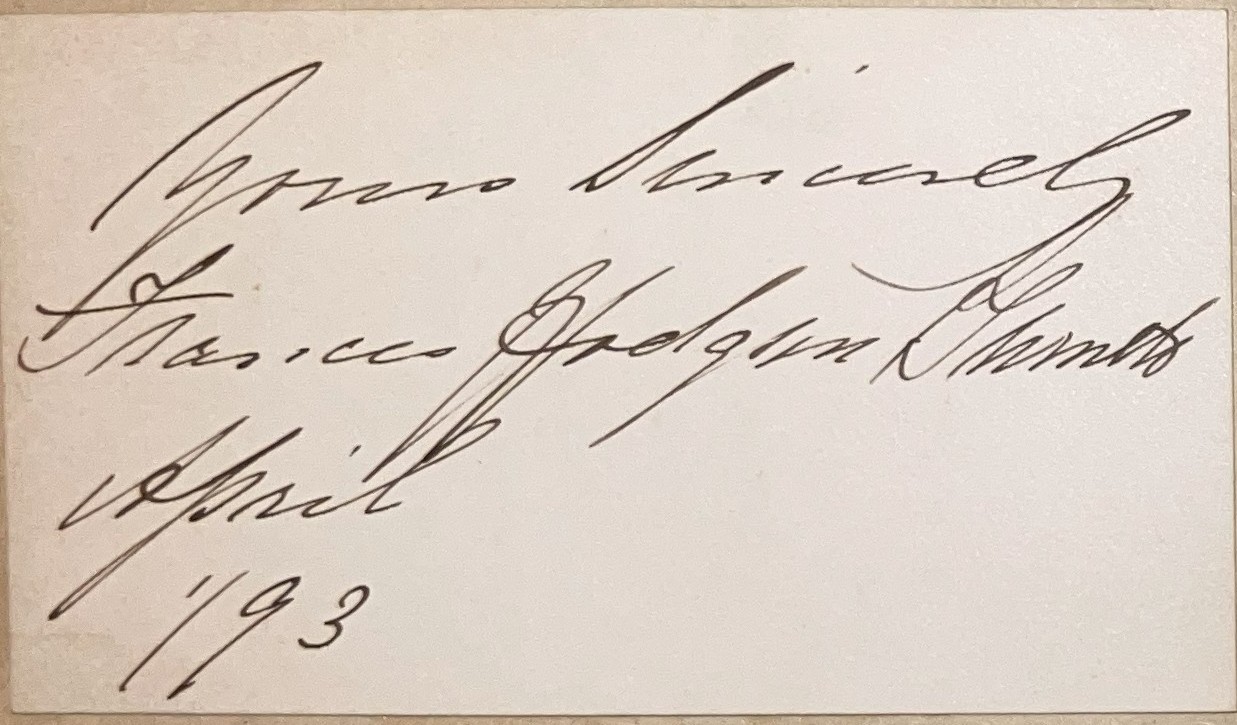 Yours Sincerely
Frances Hodgson Burnett
April
'/93